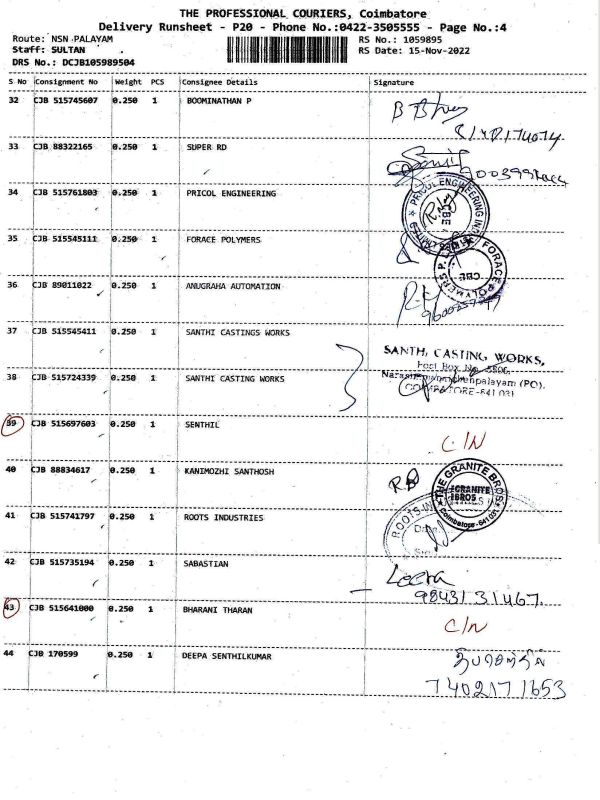 THE PROFESSIONAL COURIERS, Coimbatore
Delivery Runsheet - P20 - Phone No.:0422-3505555 - Page No.:4
Route: NSN PALAYAM RS No.: 1059895
Staff: SULTAN RS Date: 15-Nov-2022
DRS No.: DCJB105989504
S No Consignment No Weight PCS Consignee Details Signature
32 CJB 515745607 0.250 1 BOOMINATHAN P
33 CJB 88322165 0.250 1 SUPER RD
34 CJB 515761803 0.250 1 PRICOL ENGINEERING
PRICOL ENGINEERING
CBE
35 CJB 515545111 0.250 1 FORACE POLYMERS
FORACE POLYMERS P.
CBE
36 CJB 89011022 0.250 1 ANUGRAHA AUTOMATION
37 CJB 515545411 0.250 1 SANTHI CASTINGS WORKS
SANTHI CASTING WORKS,
Post Box No. 5806,
38 CJB 515724339 0.250 1 SANTHI CASTING WORKS
palayam (PO).
COIMBATORE-641 031
39 CJB 515697603 0.250 1 SENTHIL
C/N
40 CJB 88834617 0.250 1 KANIMOZHI SANTHOSH
THE GRANITE BROS
GRANITE
BROS
Coimbatore - 641 031
41 CJB 515741797 0.250 1 ROOTS INDUSTRIES
ROOTS IN
Date
42 CJB 515735194 0.250 1 SABASTIAN
Leena
98431 31467.
43 CJB 515641000 0.250 1 BHARANI THARAN
C/N
44 CJB 170599 0.250 1 DEEPA SENTHILKUMAR
7402171653